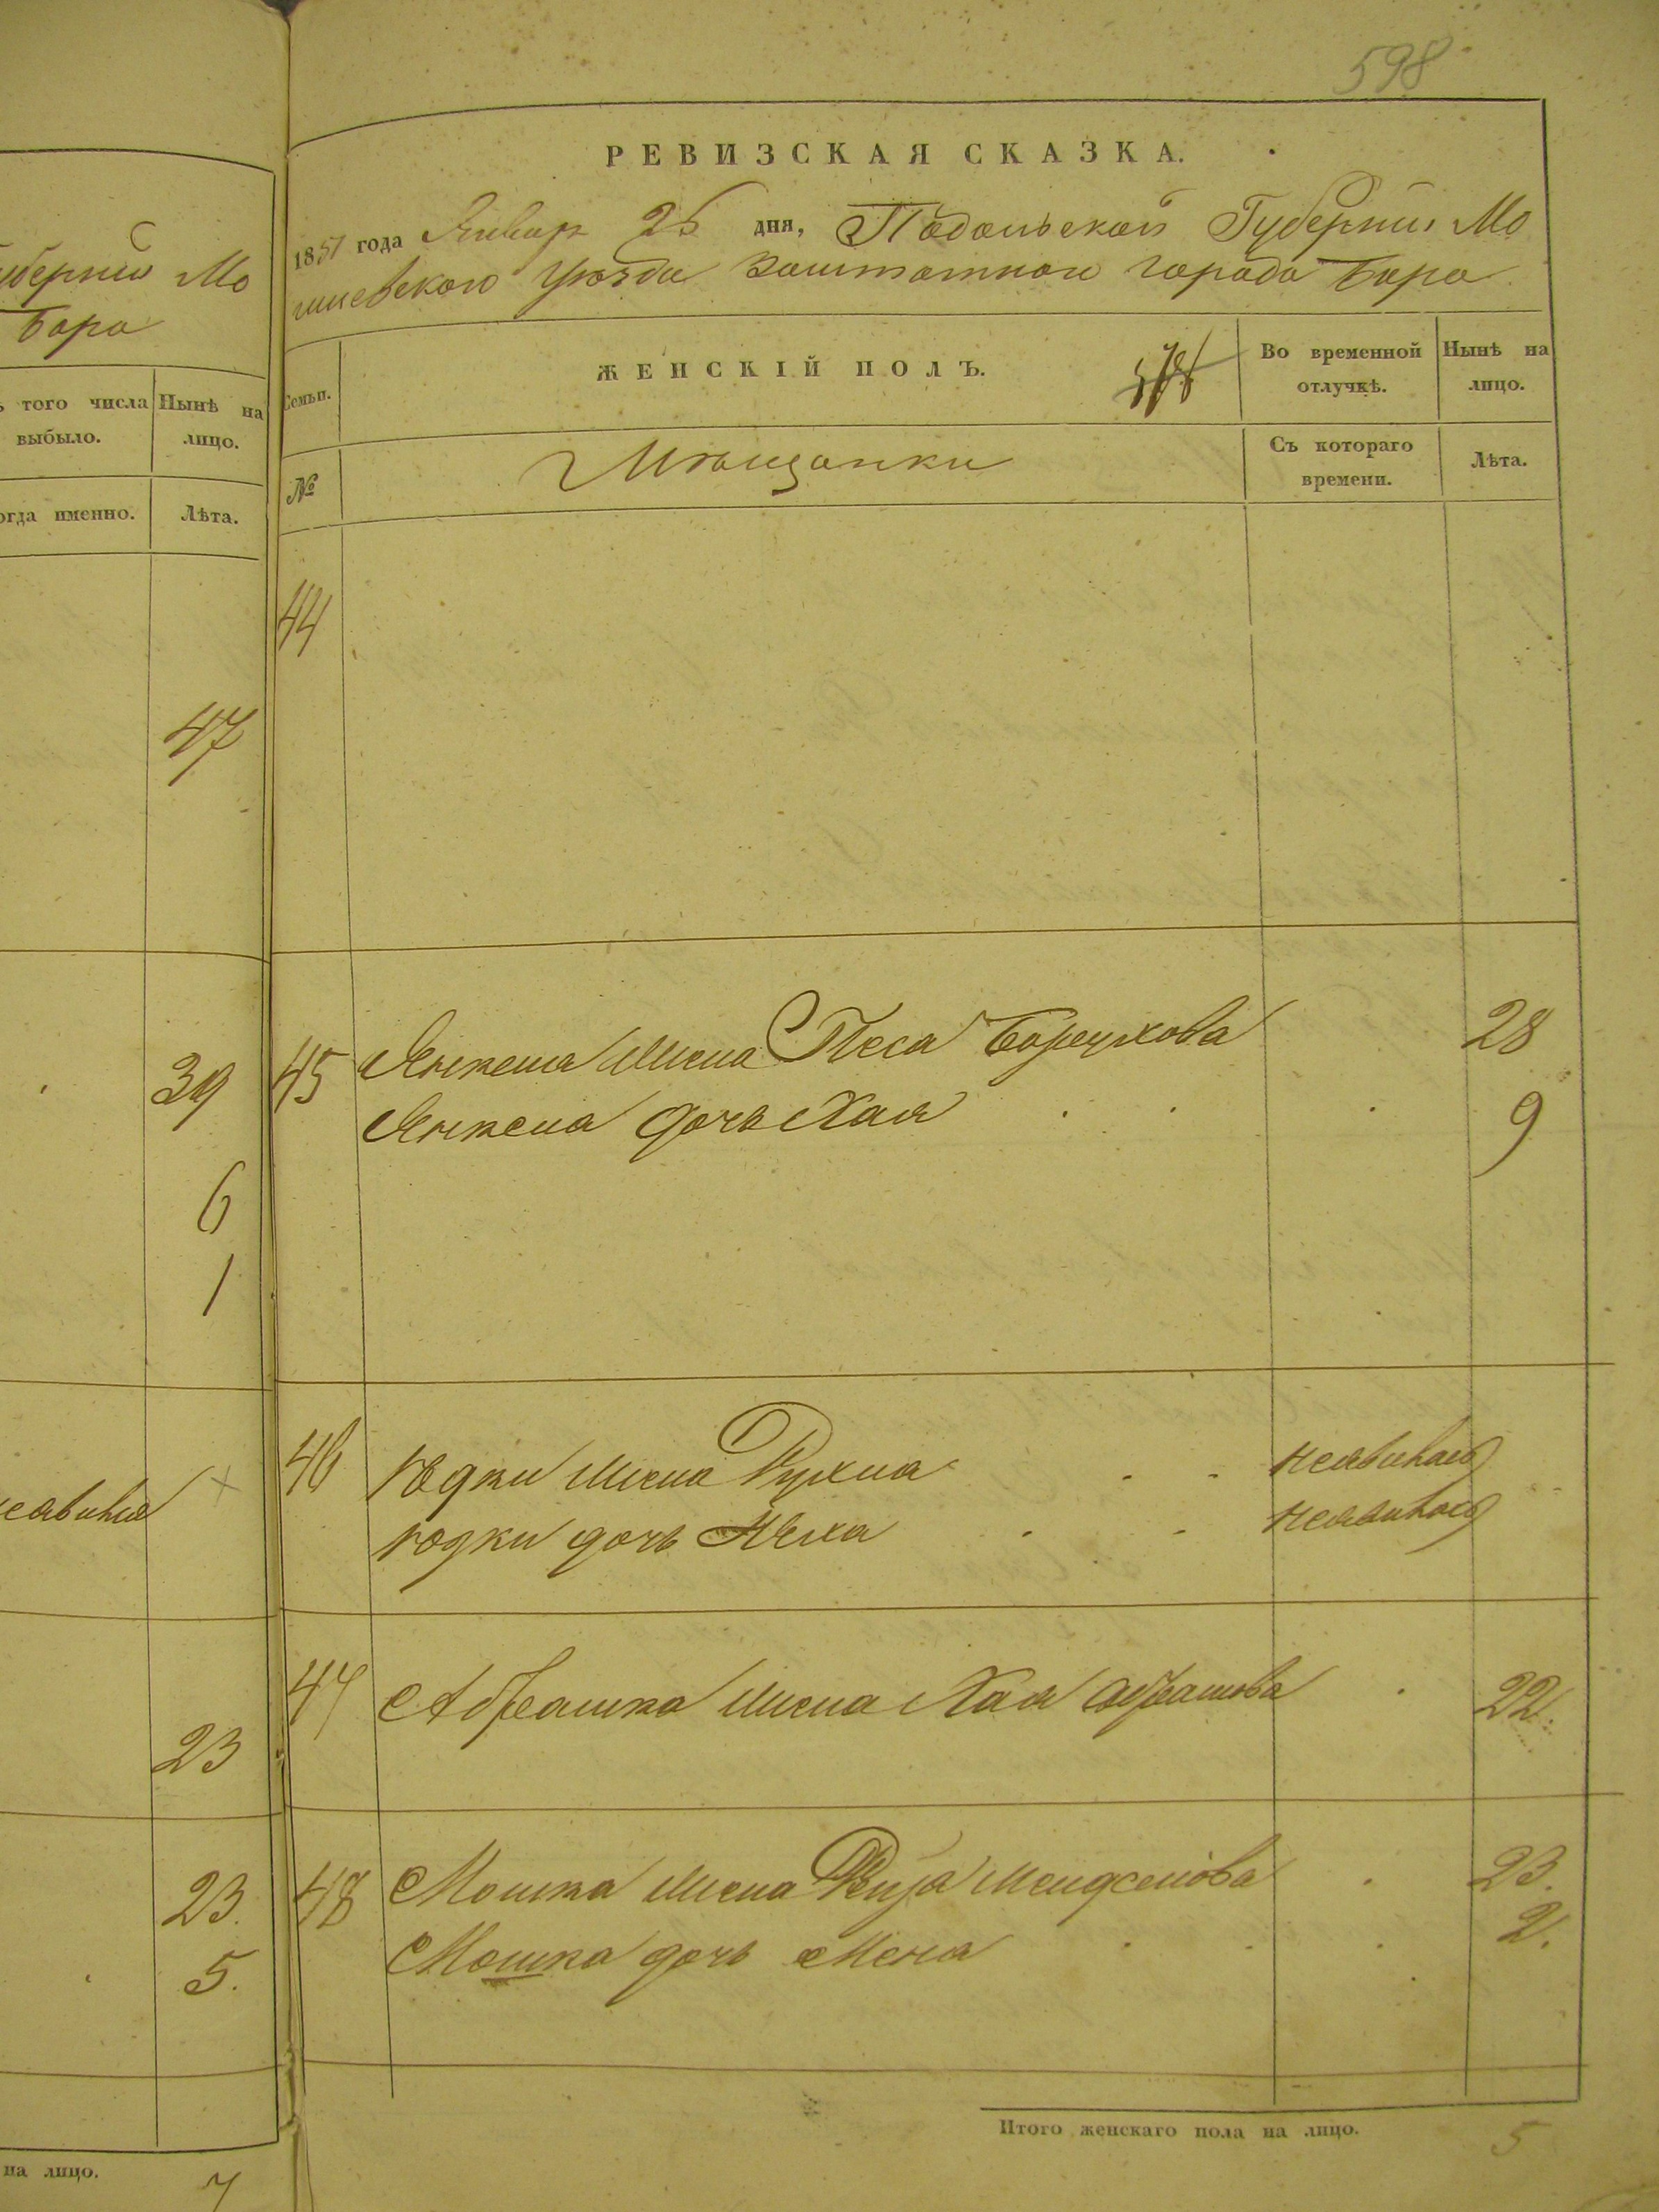 598
РЕВИЗСКАЯ СКАЗКА.
1851 года Январ 25 дня, Подольской Губернии Мо
Уѣзда Заштатнаго города Бара
губернии Мо
Бара
того числа выбыло.
Нынѣ на лицо.
именно.
Лѣта.
47
39
6
1
23
23.
5.
на лицо.
7
Семьи.
ЖЕНСКІЙ ПОЛЪ.
578
Во временной отлучкѣ.
Нынѣ на лицо.
№
Мѣщанки
Съ котораго времени.
Лѣта.
44
45 Янкеля жена Песа Борухова 28
Янкеля дочь Хая 9
46 Юдки жена Рухля неявилась
Юдки дочь неявилась
47 Абрашка жена Хая Абрашкова 22.
48 Мошка жена Мендзелова 23.
Мошка дочь 2.
Итого женскаго пола на лицо. 5